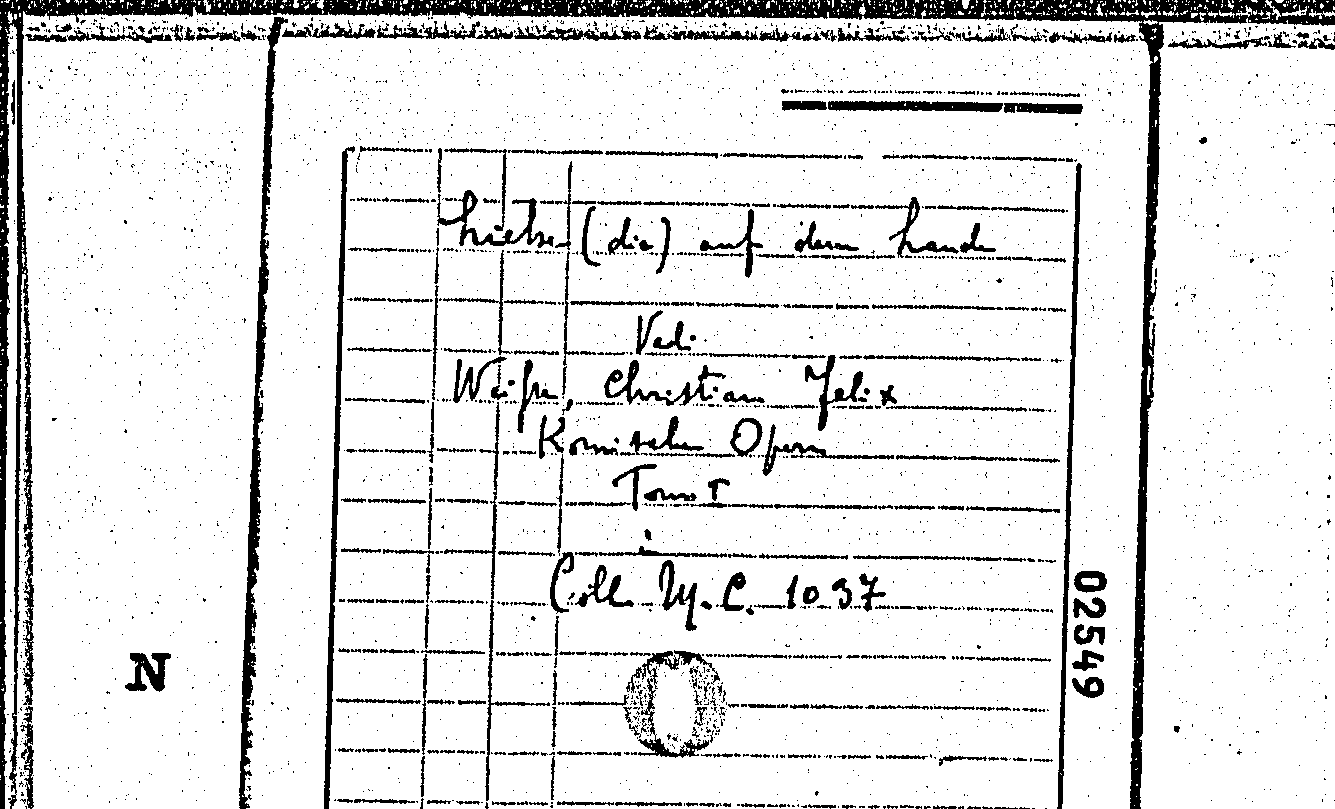 Liebe (die) auf dem Lande
Vedi
Weiße, Christian Felix
Komische Opern
Tomo I
in
Coll. M. C. 1037
02549
N